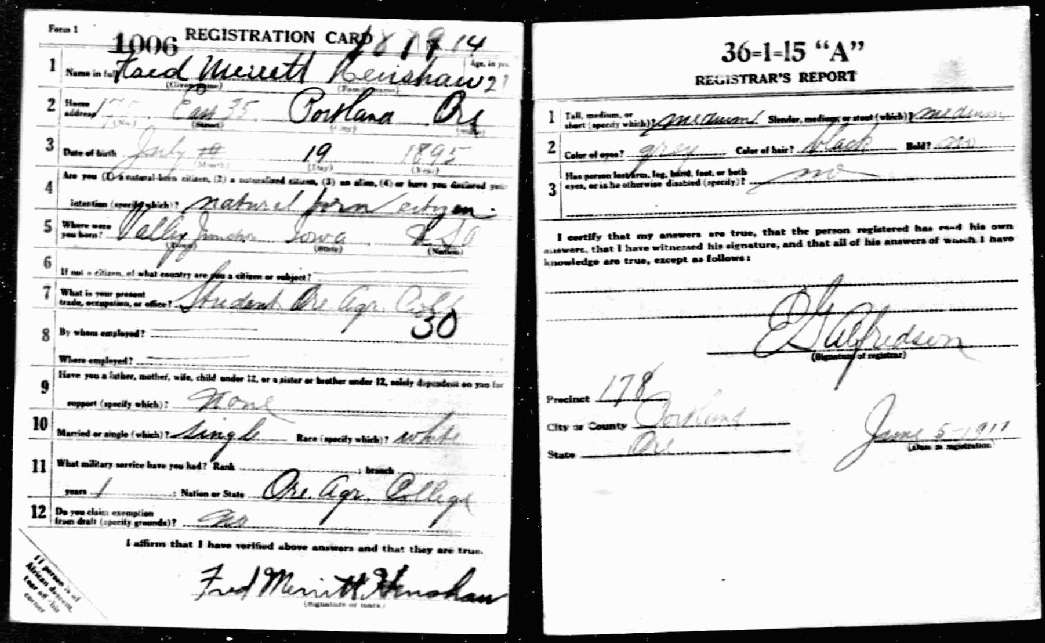 Form 1
1006 REGISTRATION CARD
1 Name in full Fred Merritt Henshaw
(Given name) (Family name)
Age, in yrs
2 Home address 175 East 35 Portland Ore
(No.) (Street) (City) (State)
3 Date of birth July 19 1895
(Month) (Day) (Year)
4 Are you (1) a natural-born citizen, (2) a naturalized citizen, (3) an alien, (4) or have you declared your
intention (specify which)? natural born citizen
5 Where were you born? Valley Junction Iowa U.S.A
(Town) (State) (Nation)
6 If not a citizen, of what country are you a citizen or subject?
7 What is your present trade, occupation, or office? Student Ore. Agr. Coll.
30
8 By whom employed?
Where employed?
9 Have you a father, mother, wife, child under 12, or a sister or brother under 12, solely dependent on you for
support (specify which)? None
10 Married or single (which)? single Race (specify which)? white
11 What military service have you had? Rank ; branch
years 1 ; Nation or State Ore. Agr. College
12 Do you claim exemption from draft (specify grounds)? no
I affirm that I have verified above answers and that they are true.
Fred Merritt Henshaw
(Signature or mark)
If person is of
African descent,
tear off this
corner
36-1-15 "A"
REGISTRAR'S REPORT
1 Tall, medium, or short (specify which)? medium Slender, medium, or stout (which)? medium
2 Color of eyes? grey Color of hair? black Bald? no
3 Has person lost arm, leg, hand, foot, or both eyes, or is he otherwise disabled (specify)? no
I certify that my answers are true, that the person registered has read his own
answers, that I have witnessed his signature, and that all of his answers of which I have
knowledge are true, except as follows:
Alfredson
(Signature of registrar)
Precinct 178
City or County Portland
State Ore
June 5-1917
(Date of registration)